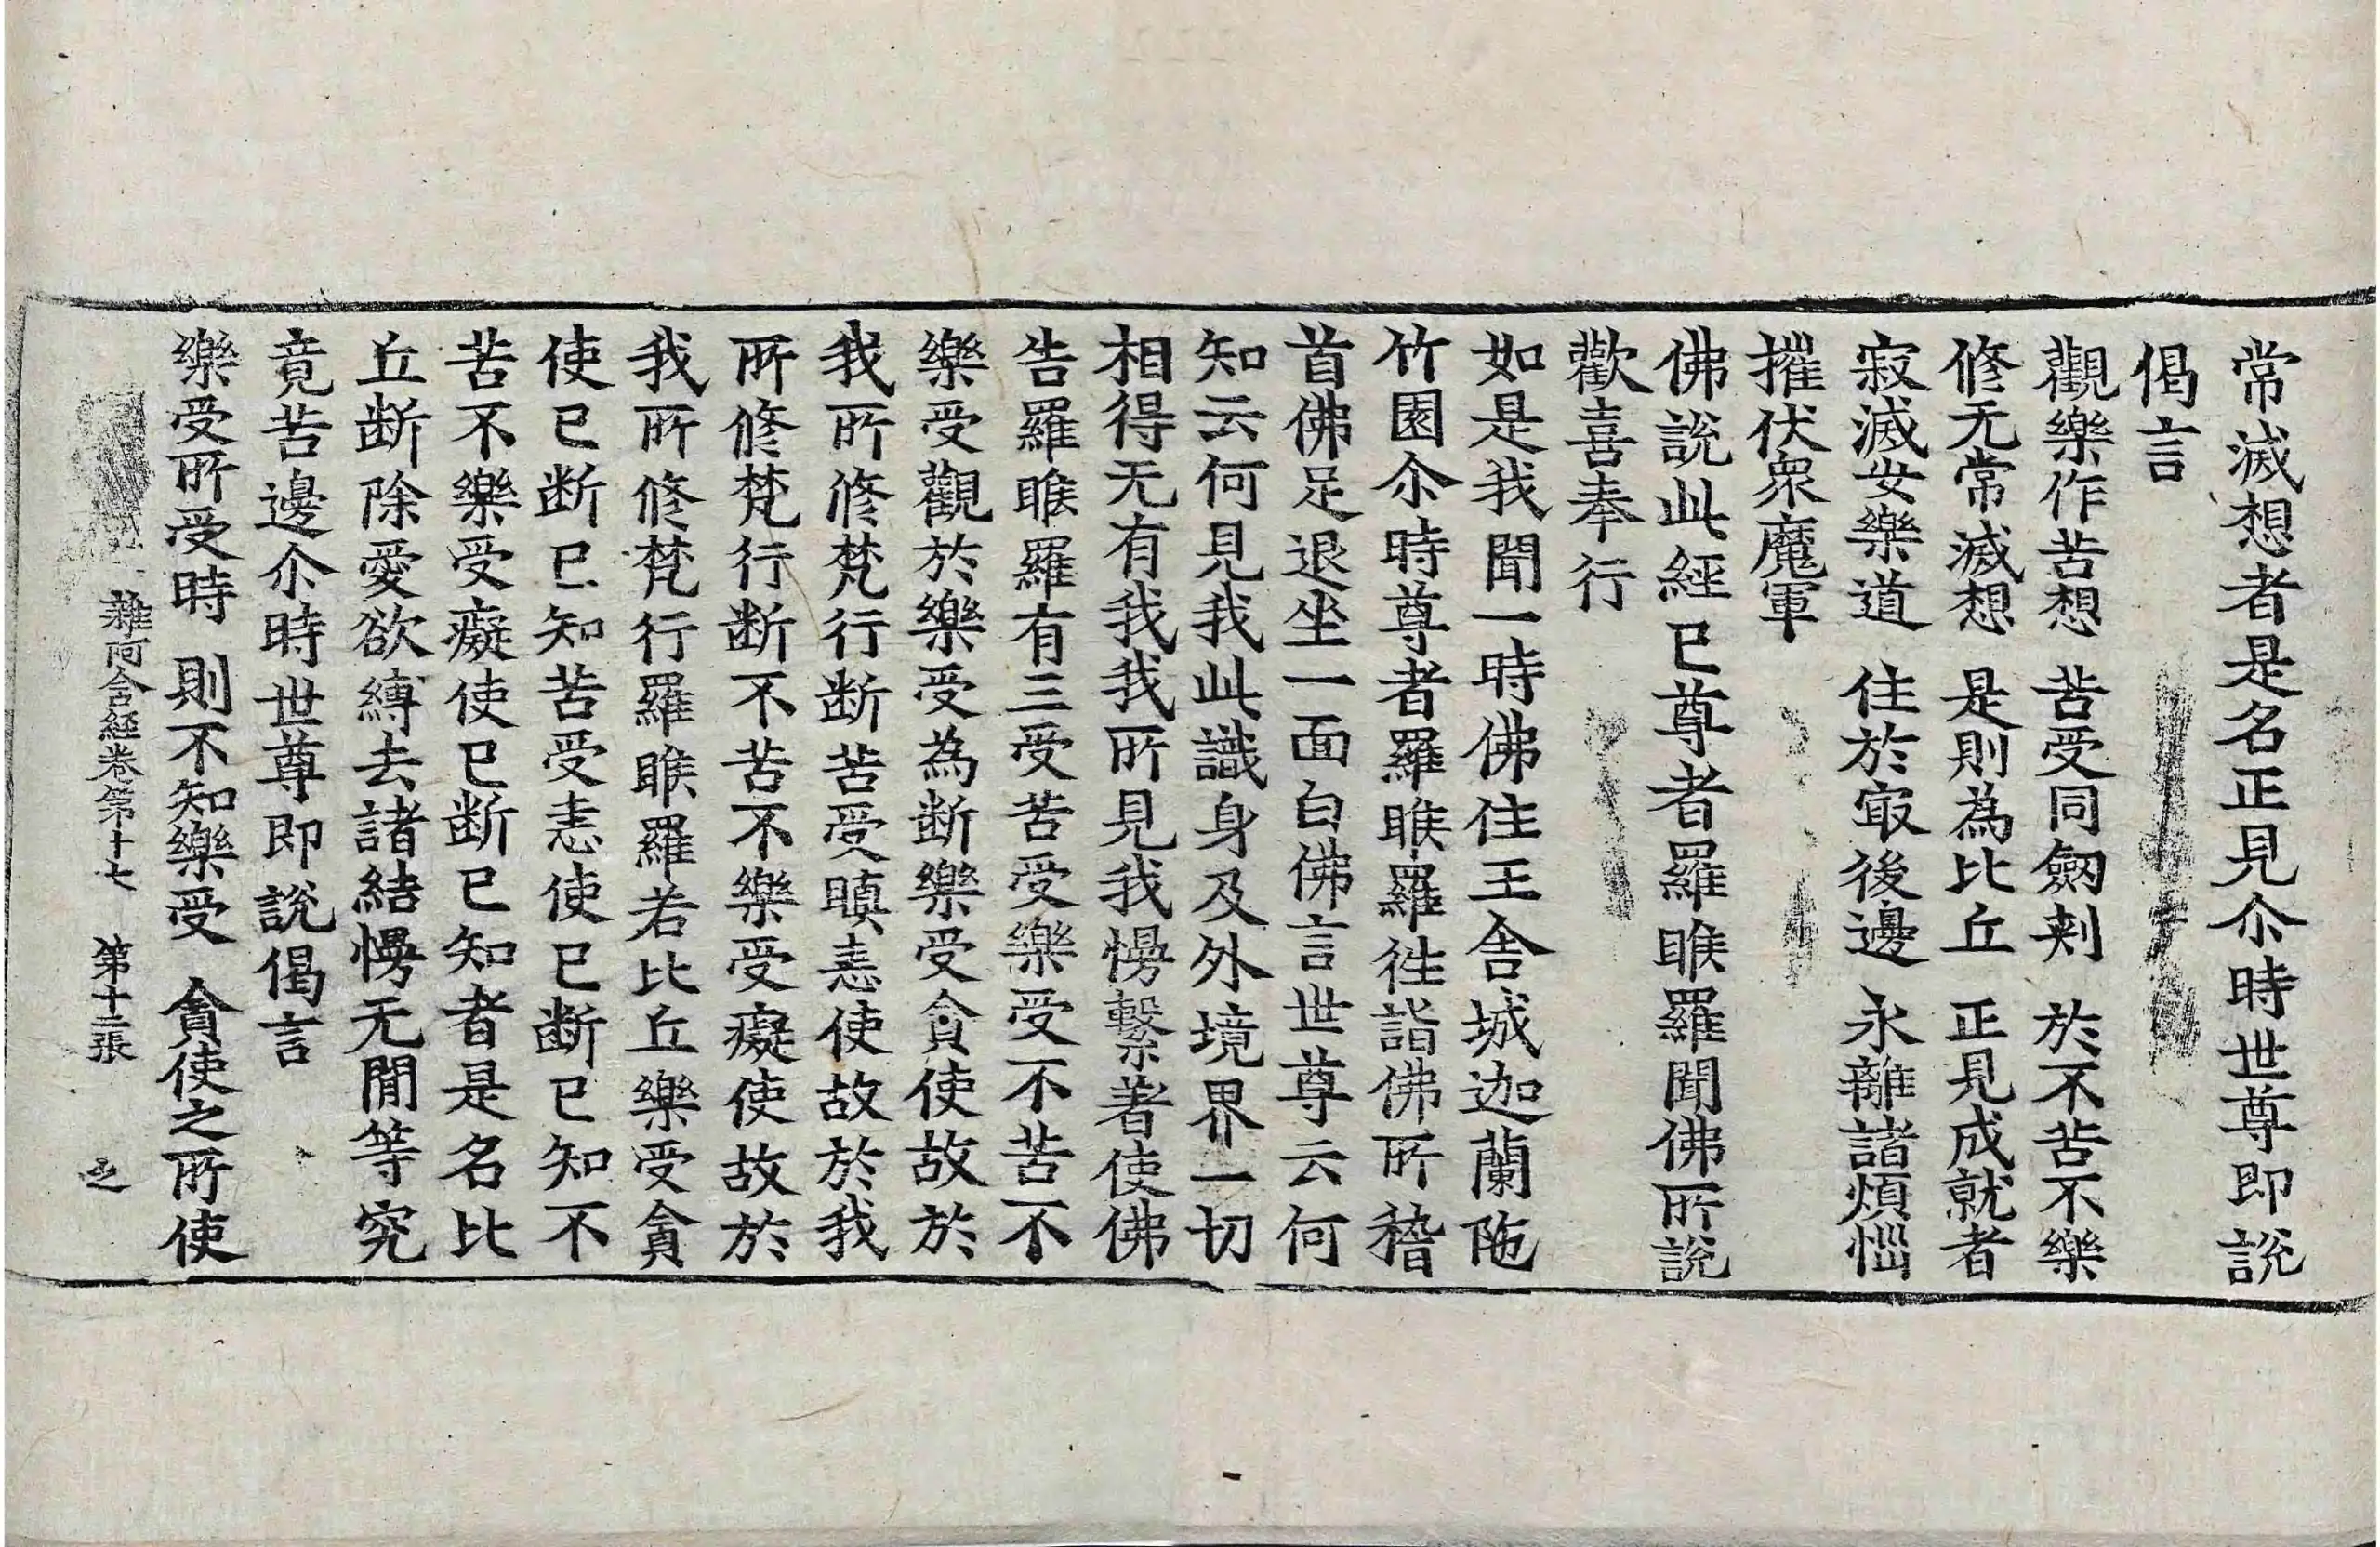 常滅想者是名正見尒時世尊即說
偈言
觀樂作苦想　苦受同劒刾　於不苦不樂
修无常滅想　是則為比丘　正見成就者
寂滅安樂道　住於㝡後邊　永離諸煩惱
摧伏衆魔軍
佛說此經已尊者羅睺羅聞佛所說
歡喜奉行
如是我聞一時佛住王舍城迦蘭陁
竹園尒時尊者羅睺羅往詣佛所稽
首佛足退坐一面白佛言世尊云何
知云何見我此識身及外境界一切
相得无有我我所見我慢繫著使佛
告羅睺羅有三受苦受樂受不苦不
樂受觀於樂受為断樂受貪使故於
我所修梵行断苦受瞋恚使故於我
所修梵行断不苦不樂受癡使故於
我所修梵行羅睺羅若比丘樂受貪
使已断已知苦受恚使已断已知不
苦不樂受癡使已断已知者是名比
丘断除愛欲縛去諸結慢无間等究
竟苦邊尒時世尊即說偈言
樂受所受時　則不知樂受　貪使之所使
雜阿含經卷第十七　第十二張